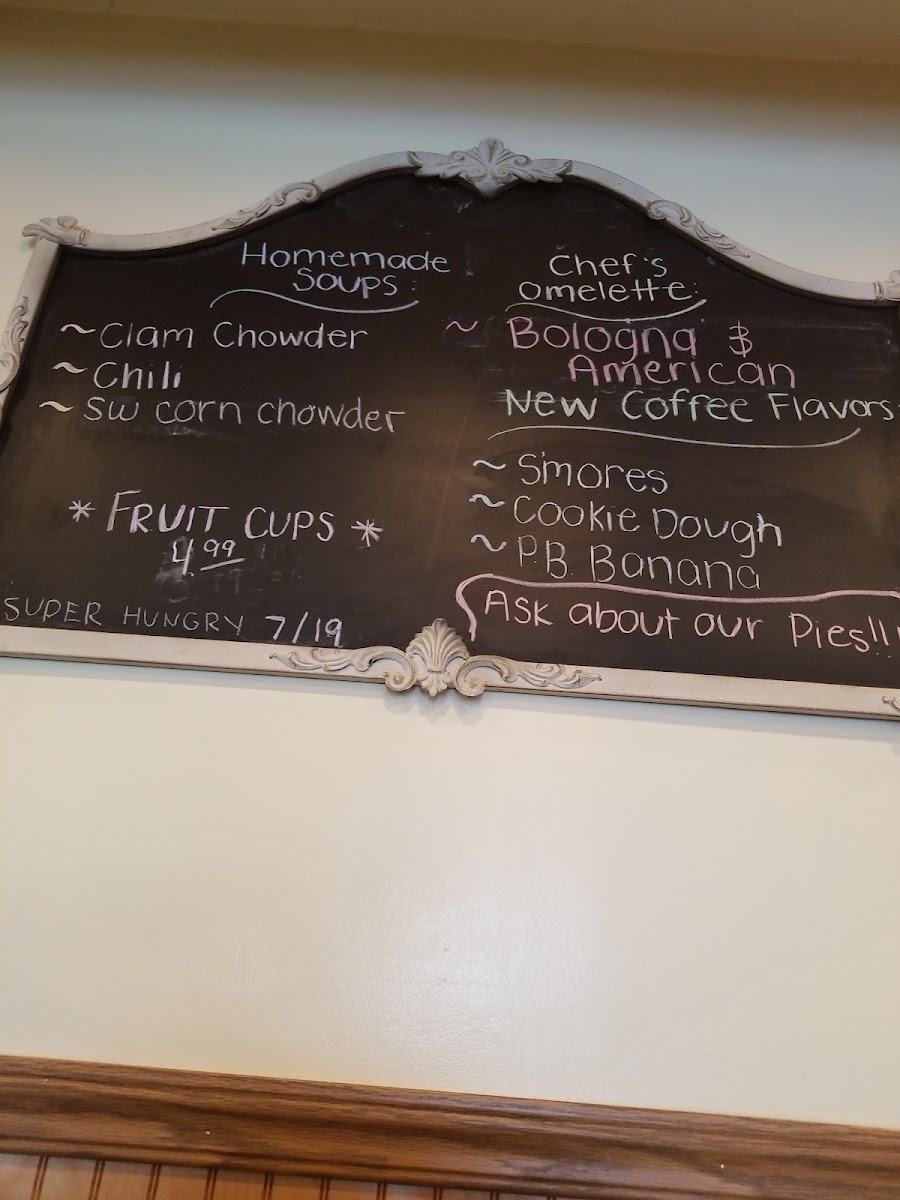 Homemade
Soups:
~ Clam Chowder
~ Chili
~ SW corn chowder
* FRUIT CUPS *
4.99
SUPER HUNGRY 7/19
Chef's
omelette:
~ Bologna &
American
New Coffee Flavors:
~ S'mores
~ Cookie Dough
~ P.B. Banana
Ask about our Pies!!!